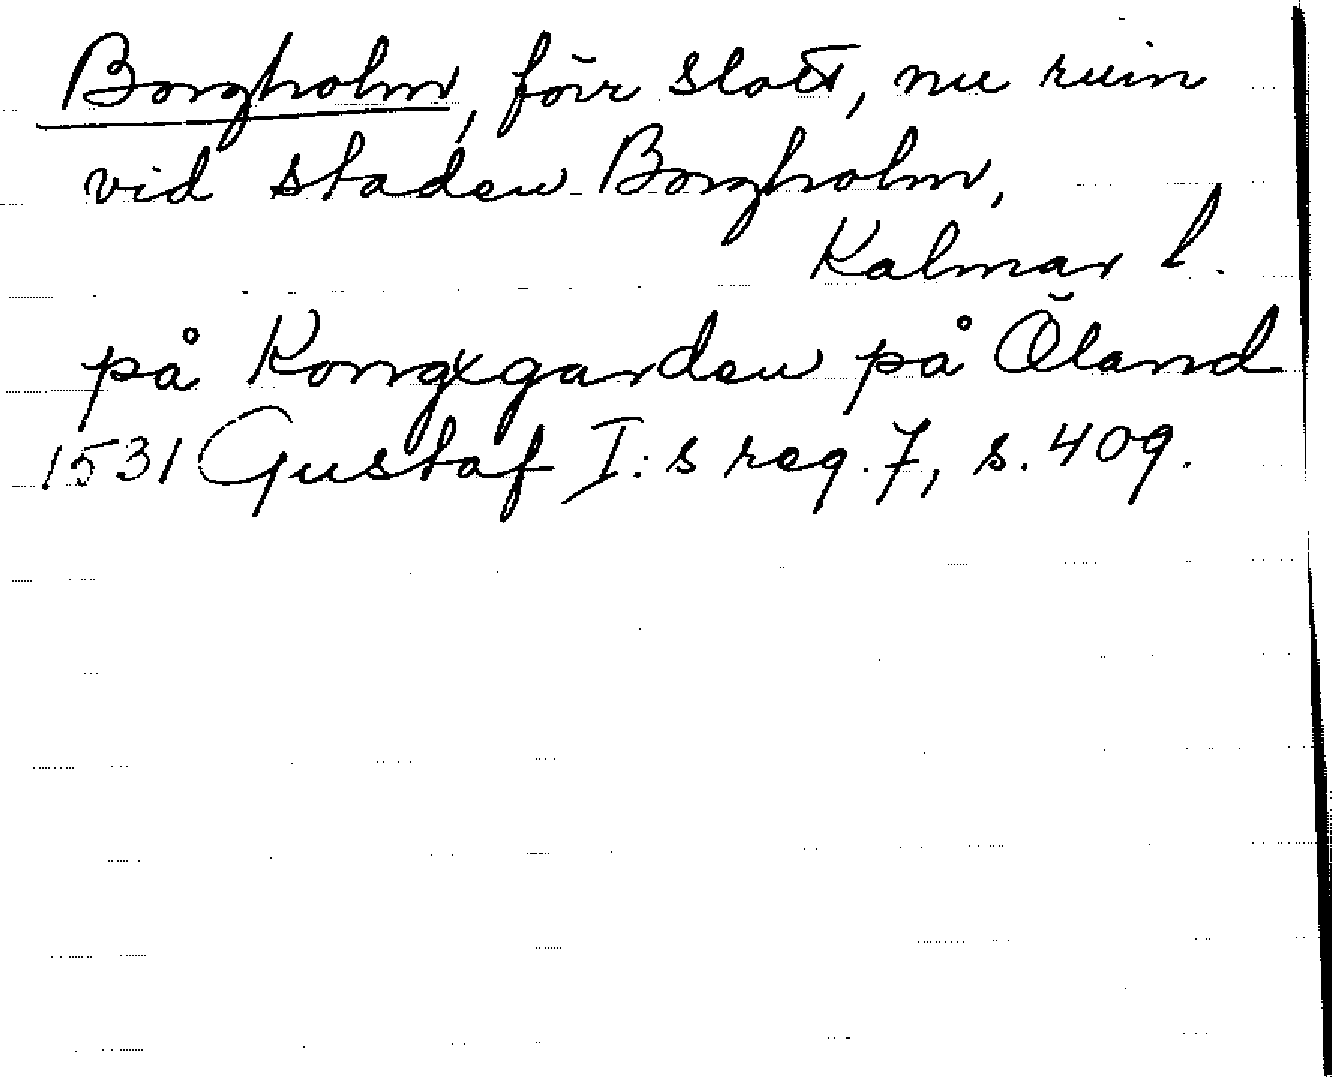 Borgholm, förr slott, nu ruin
vid staden Borgholm,
Kalmar l.
på Kongxgarden på Öland
1531 Gustaf I:s reg. 7, s. 409.